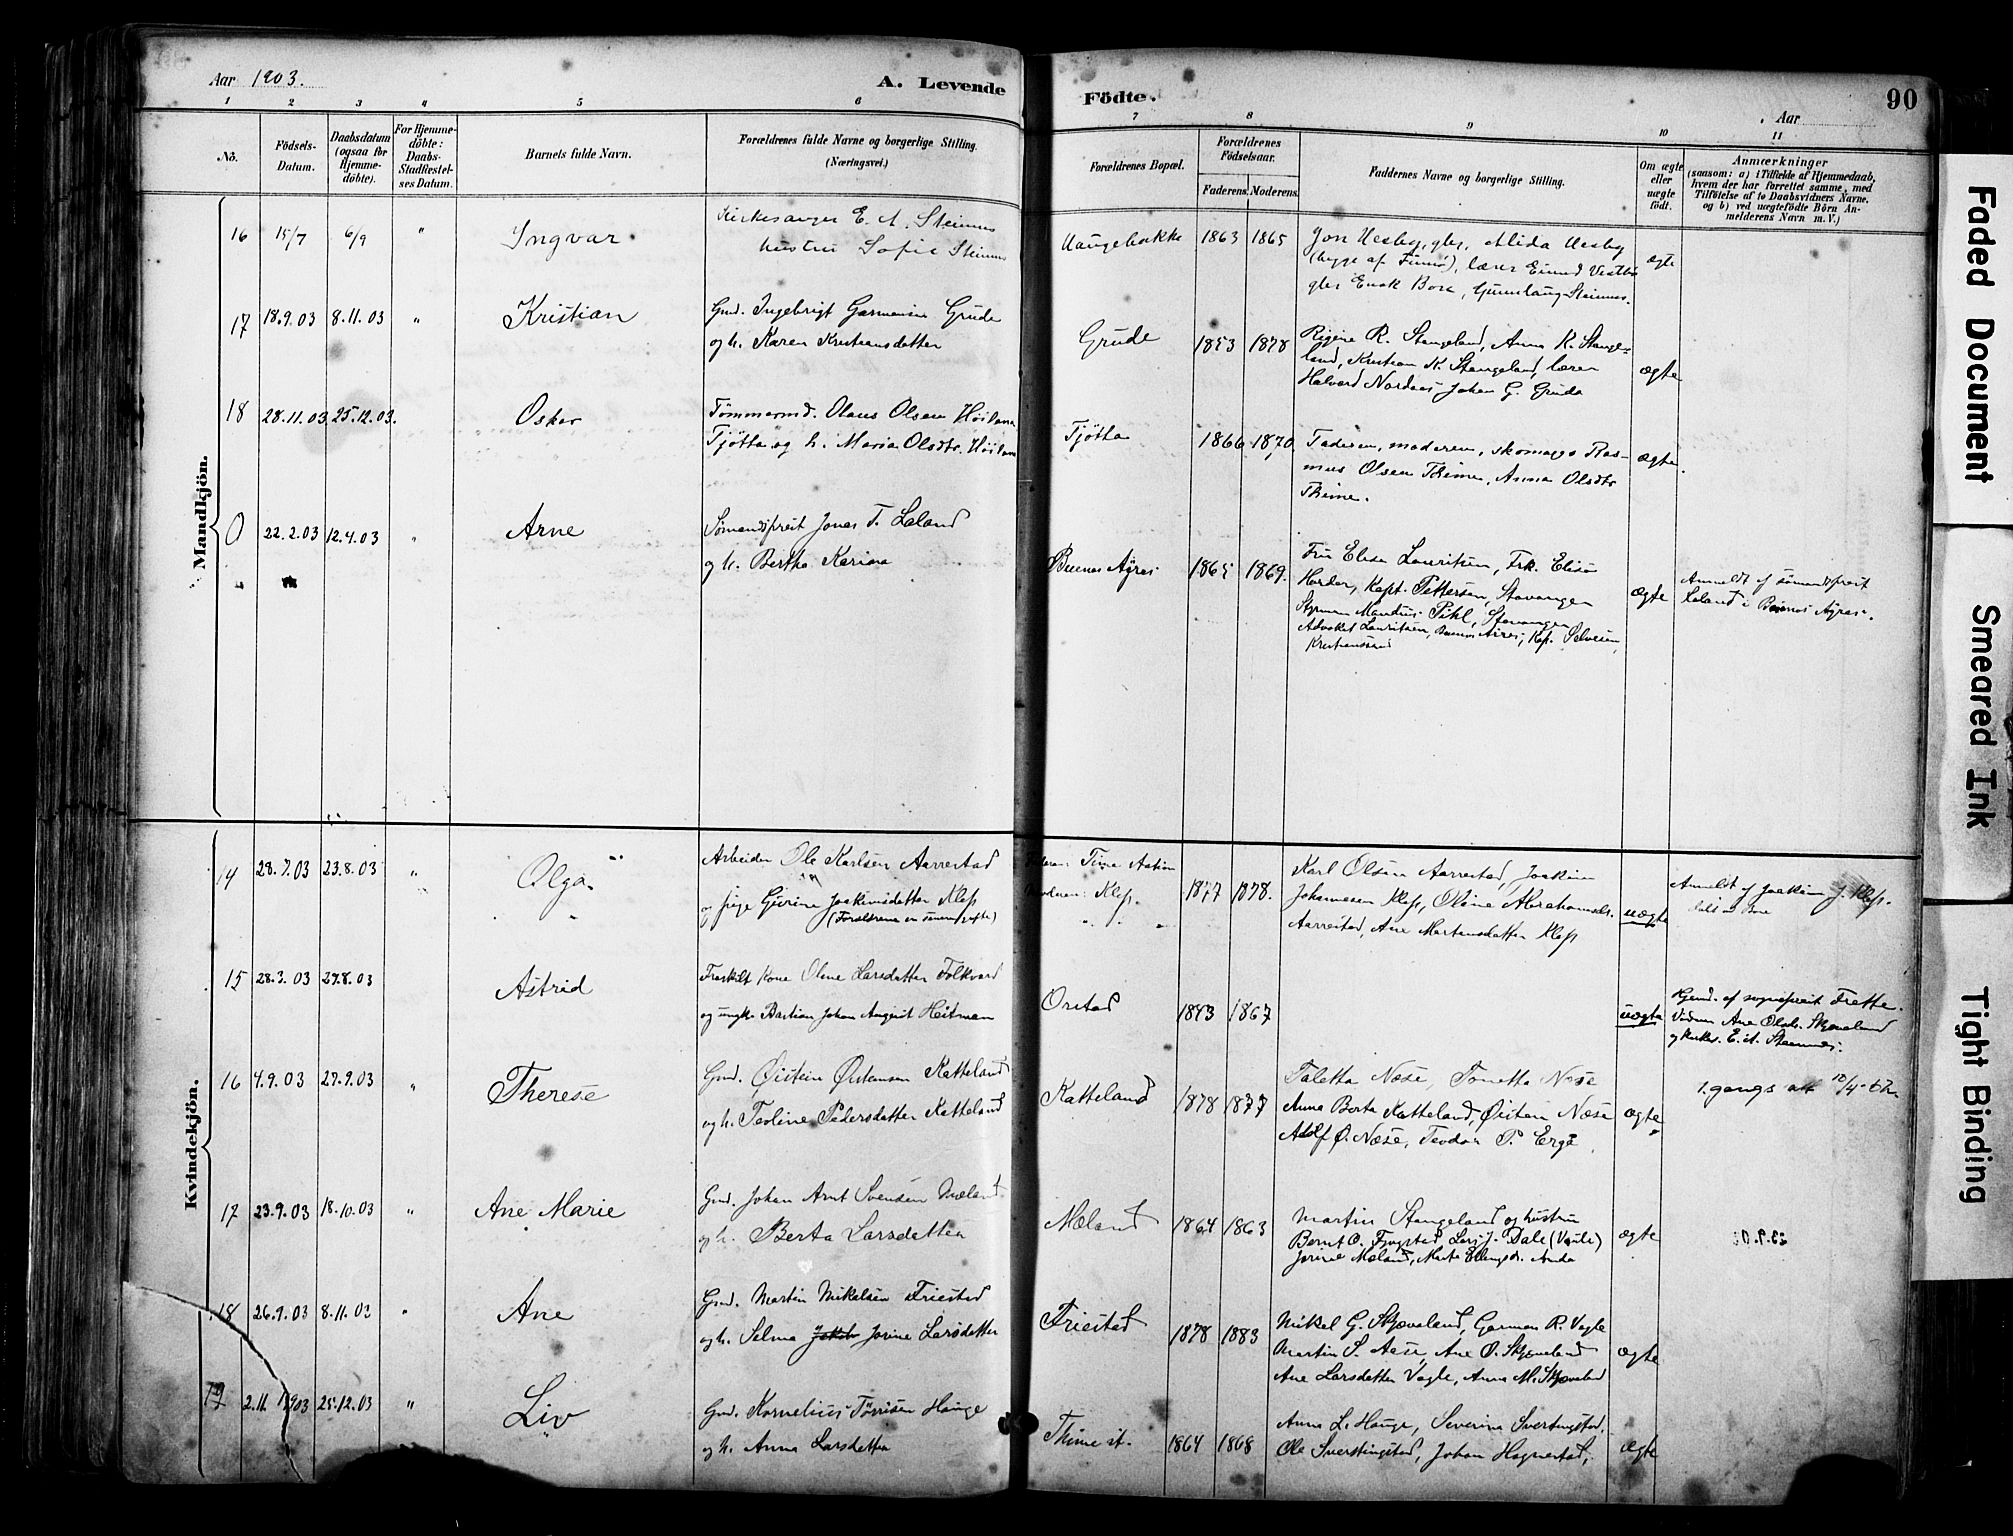 Aar 1903.
A. Levende
Födte.
90
Aar
1 2 3 4 5 6 7 8 9 10 11
No.
Födsels-
Datum.
Daabsdatum
(ogsaa for
Hjemme-
döbte).
For Hjemme-
döbte:
Daabs-
Stadfæstel-
ses Datum.
Barnets fulde Navn.
Forældrenes fulde Navne og borgerlige Stilling.
(Næringsvei.)
Forældrenes Bopæl.
Forældrenes
Födselsaar.
Faderens. Moderens.
Faddernes Navne og borgerlige Stilling.
Om ægte
eller
uægte
født.
Anmærkninger
(saasom: a) i Tilfælde af Hjemmedaab,
hvem der har forrettet samme, med
Tilföielse af to Daabsvidners Navne,
og b) ved uægtefödte Börn An-
melderens Navn m. V.)
Mandkjön.
16 15/7 6/9 " Ingvar
Kirkesanger E. A. Steinnes
hustru Sofie Steinnes
Haugebakke 1863 1865
Jon Nesby, gbr, Alida Nesby
lærer
Enok Bore, Gunnlaug Steinnes.
ægte
17 18.9.03 8.11.03 " Kristian
Gmd. Ingebrigt Garmansen Grude
og h. Karen Kristiansdatter
Grude 1853 1878
R. Stangeland, Anna K. Stange-
land, Kristian K. Stangeland, lærer
Halvard Nordaas, Johan G. Grude
ægte
18 28.11.03 25.12.03. Oskar
Tømmermd. Olaus Olsen Høiland
Tjøtta og h. Maria Olsdtr. Høiland
Tjøtta 1866 1870
Faderen, moderen, skomager Ras-
mus Olsen Thime, Anna Olsdtr
Thime.
ægte.
0 22.2.03 12.4.03 " Arne
Sømandsprest Jonas T. Laland
og h. Bertha Karina
Buenos Ayres 1865 1869.
Fru Elisa Lauritsen, Frk. Elise
Harder, Kapt. Pettersen, Stavanger
Styrman Mandius Pihl, Stavanger
Advokat Lauritsen, Buenos Aires, Kap.
Kristianssand
ægte
Anmeldt af sømandsprest
Laland i Buenos Ayres.
Kvindekjön.
14 28.7.03 23.8.03 " Olga
Arbeider Ole Karlsen Aarrestad
og pige Gurine Joakimsdatter Klep
(Forældrene er senere gifte)
Time Station
Klep. 1877 1878.
Karl Olsen Aarrestad, Joakim
Johannesen Klep, Oline Abrahamsdtr.
Aarrestad, Ane Martensdatter Klep
uægte
Anmeldt af Joakim J. Klep.
15 28.3.03 27.8.03 Astrid
Fraskilt kone Oline Larsdatter Folkvord
og ungk. Bastian Johan August Heitman
Orstad 1873 1867
uægte
Hjemd. af sogneprest Frette.
Vidner Ane Olsdtr. Skjæveland
og kirkes. E. A. Steinnes.
16 4.9.03 27.9.03 " Therese
Gmd. Øistein Østensen Katteland
og h. Teoline Pedersdatter Katteland
Katteland 1878 1877
Taletta Næse, Tonetta Næse
Anna Berta Katteland, Øistein Næse
Adolf Ø. Næse, Teodor P. Erga
ægte
1. gangs att
17 23.9.03 18.10.03 " Ane Marie
Gmd. Johan Arnt Svendsen Mæland
og h. Berta Larsdatter
Mæland 1864 1863
Martin Stangeland og hustru
Bernt O. Fjogstad, Lars J. Dale (Vaule)
Jorine Mæland, Marta Ellingsdr. Anda
ægte
18 26.9.03 8.11.03 " Ane
Gmd. Martin Mikalsen Friestad
og h. Selma Jakob Jorine Larsdatter
Friestad 1878 1883
Mikal G. Skjæveland, Garman R. Vagle
Martin S. Aase, Ane O. Skjæveland
Ane Larsdatter Vagle, Anna M. Skjæveland
ægte
19 2.11.1903 25.12.03 " Liv
Gmd. Kornelius Tørrisen Hauge
og h. Anna Larsdatter
Thime st. 1864 1868
Anna L. Hauge, Severina Svertingstad,
Ole Svertingstad, Johan Hognestad,
ægte
Faded Document
Smeared Ink
Tight Binding